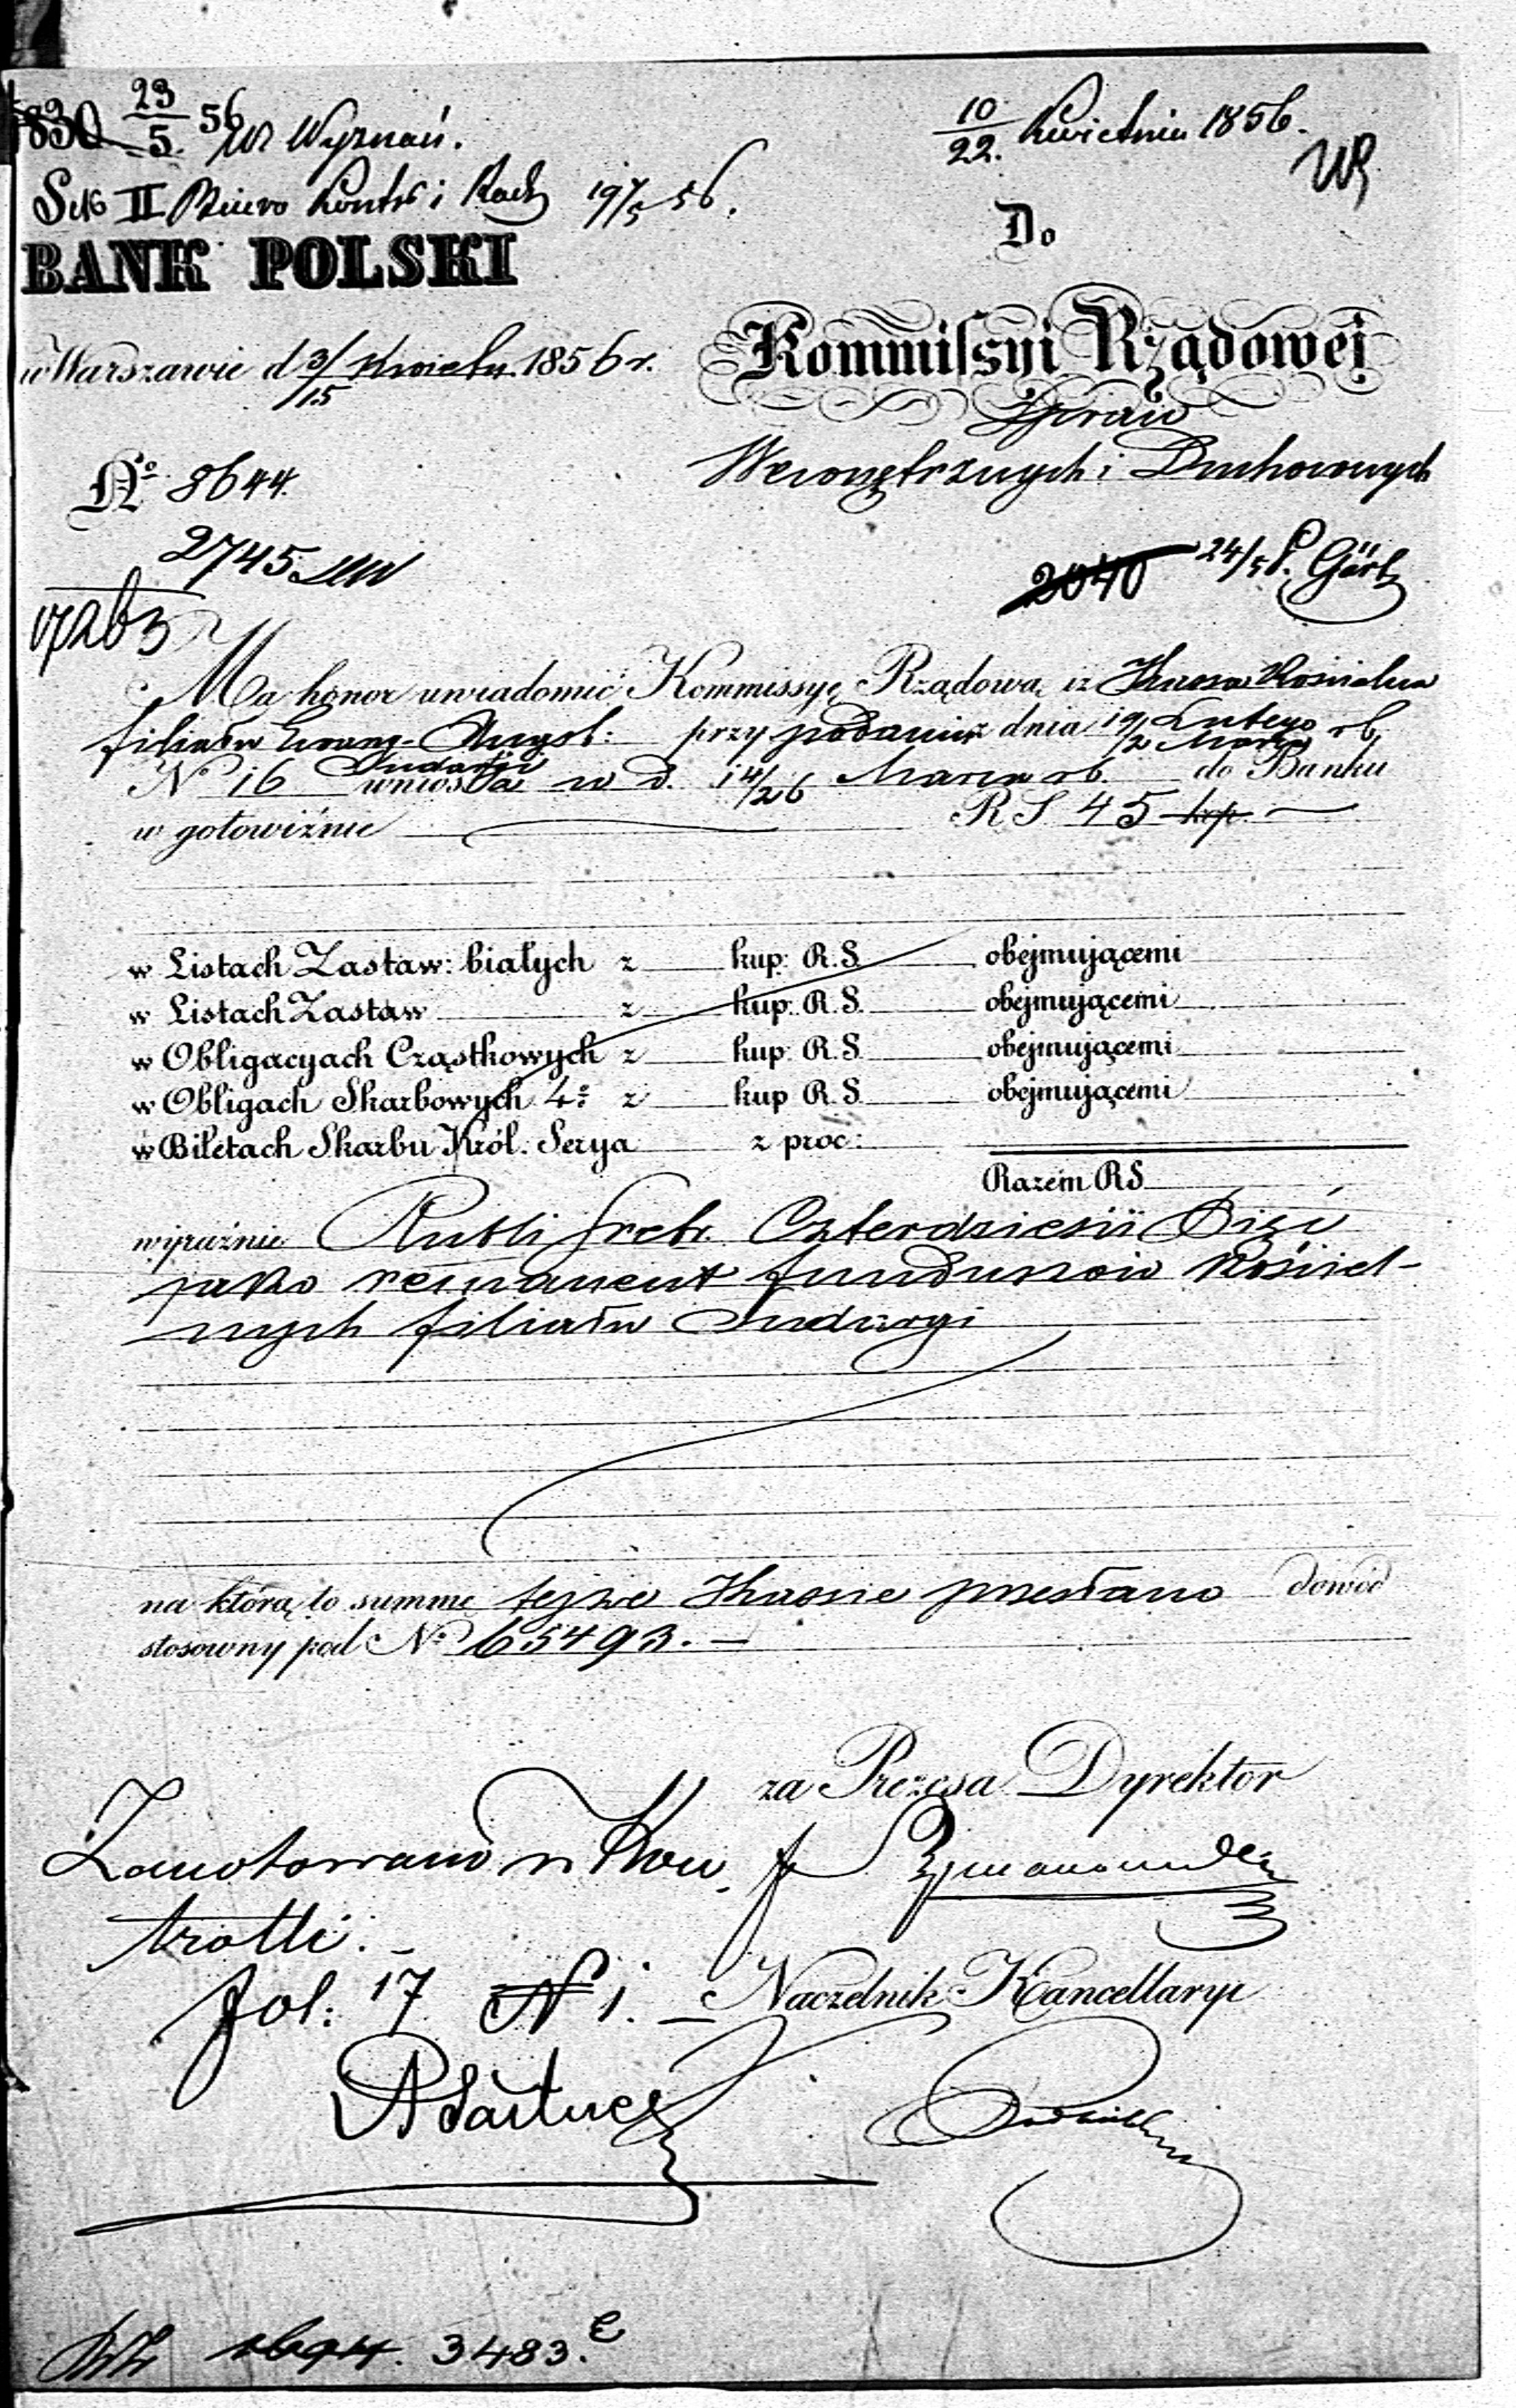 23/5 56 Wyznań.
10/22. Kwietnia 1856.
Sek II Biuro Kontr i Rach 19/5 56.
Do
BANK POLSKI
Kommissyi Rządowej
w Warszawie d 3/15 Kwietn. 1856 r.
Spraw
Wewnętrznych i Duchownych
No 8644.
2745
2040 24/5
Ma honor uwiadomić Kommissyę Rządową iż Kassa Kościelna
filiału Ewang-Augsb: przy podaniu z dnia 19/2 Lutego/Marca rb
No 16 wniosła w d. 14/26 Marca rb. do Banku
w gotowiźnie RS 45 kop. —
w Listach Zastaw: białych z kup: R.S. obejmującemi
w Listach Zastaw z kup: R.S. obejmującemi
w Obligacyach Cząstkowych z kup: R.S. obejmującemi
w Obligach Skarbowych 4: z kup R.S. obejmującemi
w Biletach Skarbu Król. Serya z proc:
Razem RS
wyraźnie Rubli srebr. Czterdzieści Pięć
jako remanent funduszów kościel-
nych filiału
na którą to summę tejże Kassie przesłano dowód
stosowny pod No 65493. —
za Prezesa Dyrektor
Zanotowano w Kon-
trolli. —
fol: 17 N 1. — Naczelnik Kancellaryi
3483.